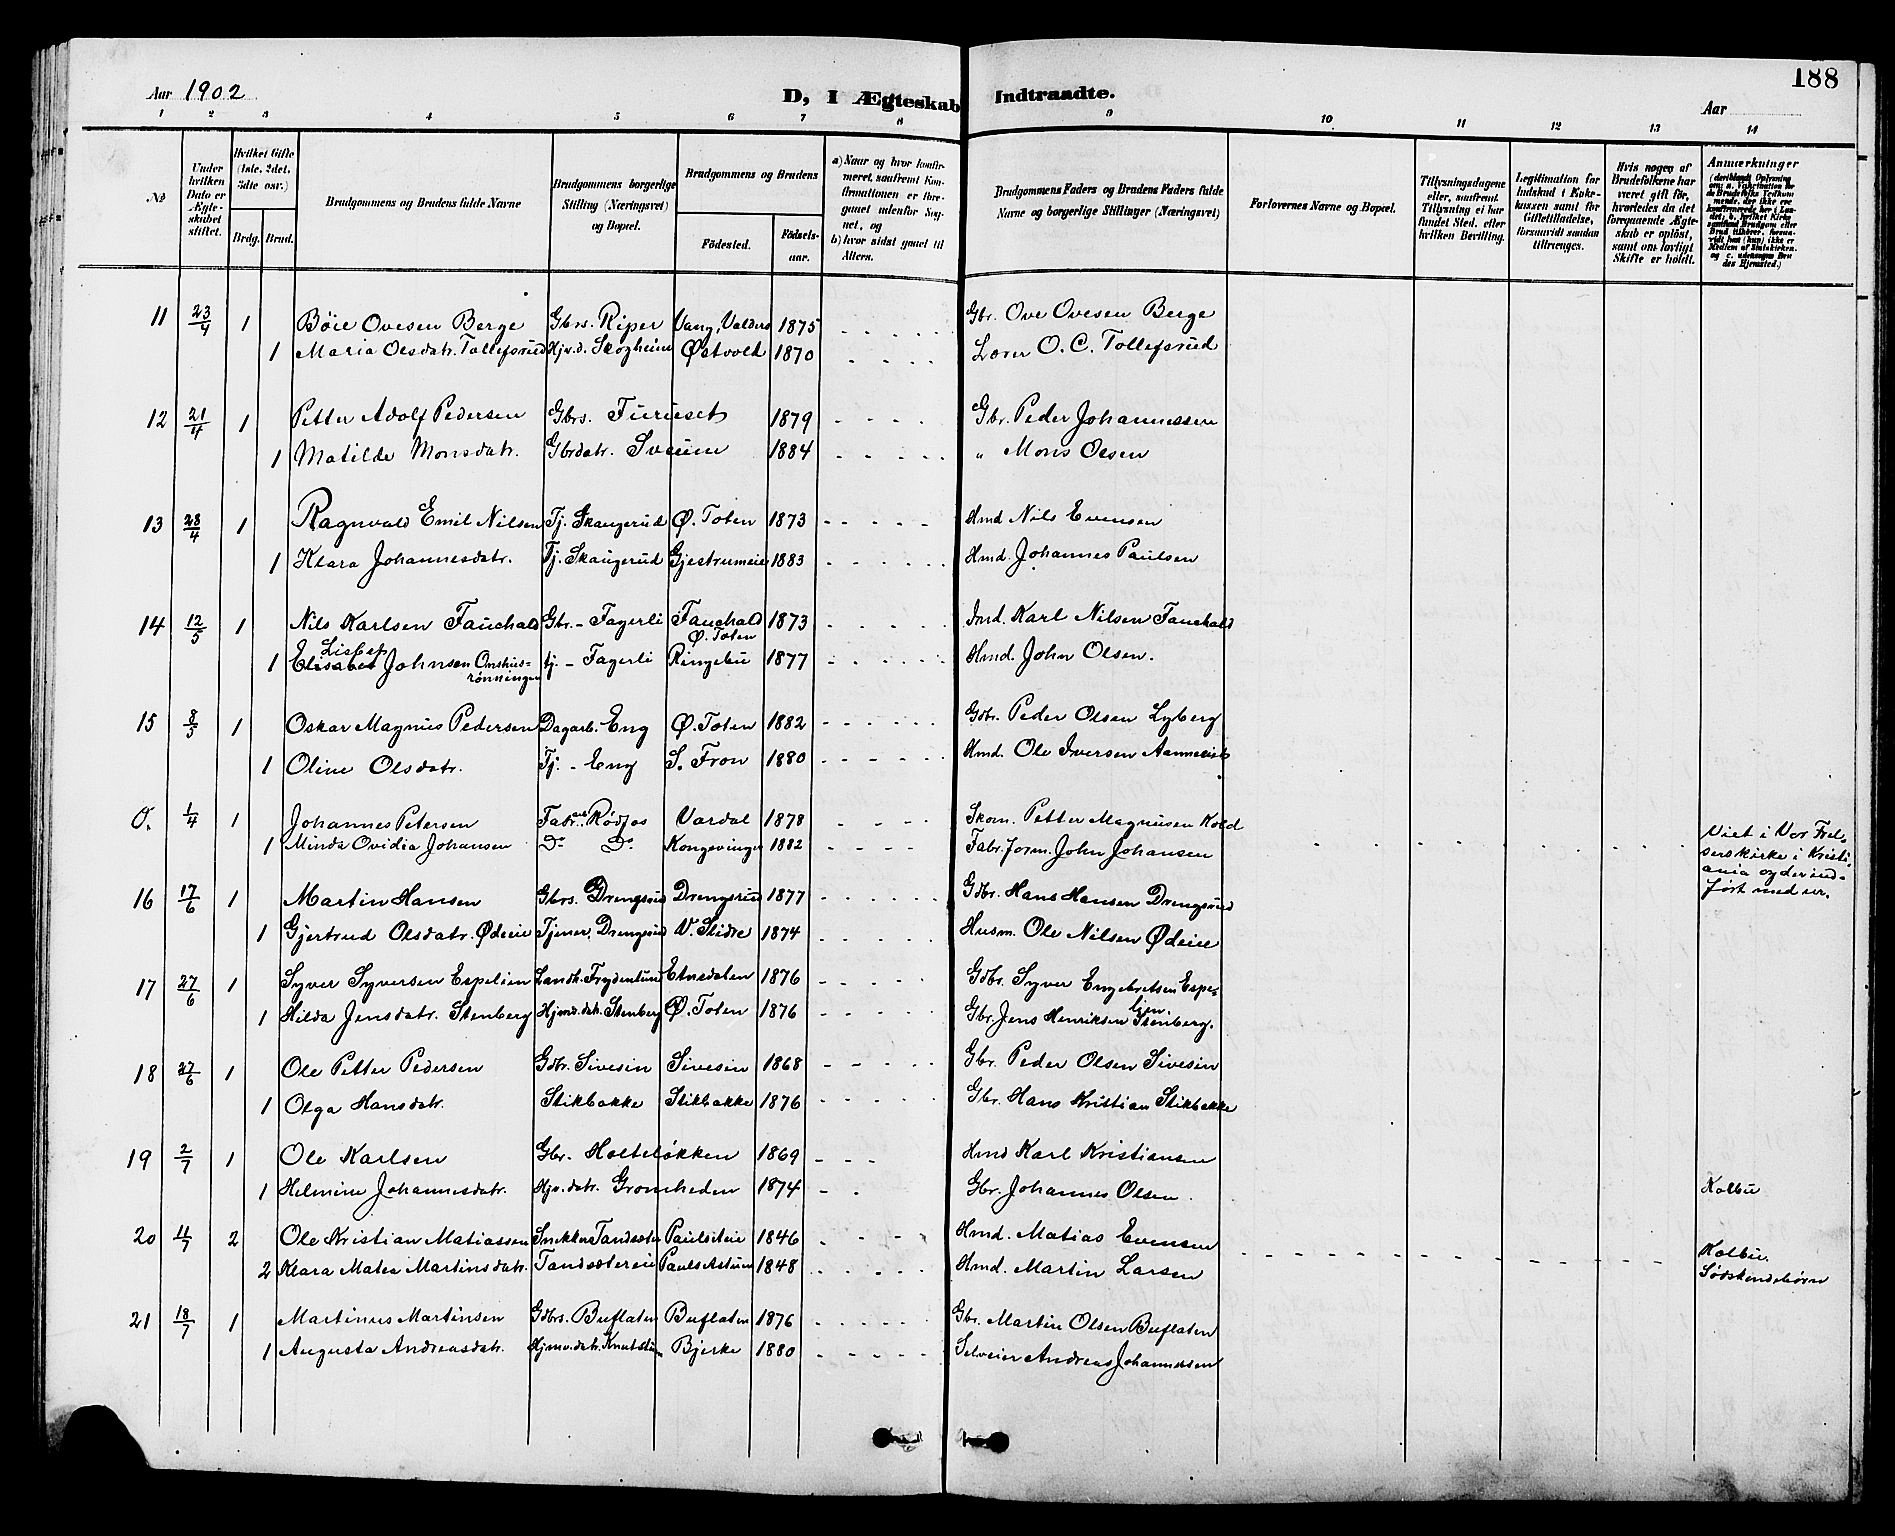 188
Aar 1902
D, I Ægteskab Indtraadte.
Aar
1 2 3 4 5 6 7 8 9 10 11 12 13 14
No
Under hvilken Dato er Ægteskabet stiftet.
Hvilket Gifte (1ste, 2det, 3die osv.)
Brdg. Brud.
Brudgommens og Brudens fulde Navne
Brudgommens borgerlige Stilling (Næringsvei) og Bopæl.
Brudgommens og Brudens
Födested. Födselsaar.
a) Naar og hvor konfirmeret, saafremt Konfirmationen er foregaaet udenfor Sognet, og
b) hvor sidst gaaet til Alters.
Brudgommens Faders og Brudens Faders fulde Navne og borgerlige Stillinger (Næringsvei)
Forlovernes Navne og Bopæl.
Tillysningsdagene eller, saafremt Tillysning ei har fundet Sted, efter hvilken Bevilling.
Legitimation for Indskud i Enkekassen samt for Giftetilladelse, forsaavidt saadan tiltrænges.
Hvis nogen af Brudefolkene har været gift för, hvorledes da det foregaaende Ægteskab er oplöst, samt om lovligt Skifte er holdt.
Anmærkninger
11 23/4 1 Böie Ovesen Berge Gbrs. Riper Vang, Valders 1875 Gbr. Ove Ovesen Berge
1 Maria Olsdatr. Tollefsrud Hjv.d. Skogheim Østvold 1870 Lærer O. C. Tollefsrud
12 21/4 1 Petter Adolf Pedersen Gbrs. Furuset 1879 Gbr. Peder Johannessen
1 Matilde Monsdatr. Gbrdatr. Sveum 1884 " Mons Olsen
13 28/4 1 Ragnvald Emil Nilsen Tj. Skaugerud Ø. Toten 1873 Hmd Nils Evensen
1 Klara Johannesdatr. Tj. Skaugerud Gjestrumeie 1883 Hmd. Johannes Paulsen
14 12/5 1 Nils Karlsen Fauchald Gbr. - Fagerli Fauchald Ø. Toten 1873 Ind. Karl Nilsen Fauchald
1 Elisabet Lisbet Johnsen Onshusrönningen tj. - Fagerli Ringebu 1877 Hmd. John Olsen.
15 8/5 1 Oskar Magnus Pedersen Dagarb. Eng Ø. Toten 1882 Gdbr. Peder Olsen Lyberg
1 Oline Olsdatr. Tj. - Eng S. Fron 1880 Hmd. Ole Iversen
O. 1/4 1 Johannes Petersen Fabr.arb. Rödfos Vardal 1878 Skom. Petter Magnusen Kold
1 Minda Ovidia Johansen Do Do Kongsvinger 1882 Fabr.form. John Johansen Viet i Vor Frelserskirke i Kristiania og der indfört med nr.
16 17/6 1 Martin Hansen Gbrs. Drengsrud Drengsrud 1877 Gdbr. Hans Hansen Drengsrud
1 Gjertrud Olsdatr. Ødeie Tjener. Drengsrud V. Slidre 1874 Husm. Ole Nilsen Ødeie
17 27/6 1 Syver Syversen Espelien Landh. Frydenlund Etnedalen 1876 Gdbr. Syver Engebretsen Espelien.
1 Hilda Jensdatr. Stenberg Hjmv.dat. Stenberg Ø. Toten 1876 Gbr. Jens Henriksen Stenberg.
18 27/6 1 Ole Petter Pedersen Gdbr. Sivesin Sivesin 1868 Gbr. Peder Olsen Sivesin
1 Olga Hansdatr. Stikbakke Stikbakke 1876 Gbr. Hans Kristian Stikbakke
19 2/7 1 Ole Karlsen Gbr. Holteløkken 1869 Hmd Karl Kristiansen
1 Helmine Johannesdatr. Hjv.datr. Grönheden 1874 Gbr. Johannes Olsen. Kolbu
20 11/7 2 Ole Kristian Matiassen Snekker Tandsæter Paulseie 1846 Hmd. Matias Evensen
2 Klara Matea Martinsdatr. Tandsætereie 1848 Hmd. Martin Larsen Kolbu. Södskendebörn
21 18/7 1 Martinus Martinsen Gdbrs. Buflaten Buflaten 1876 Gbr. Martin Olsen Buflaten
1 Augusta Andreasdatr. Hjmv.datr. Bjerke 1880 Selveier Andreas Johannessen